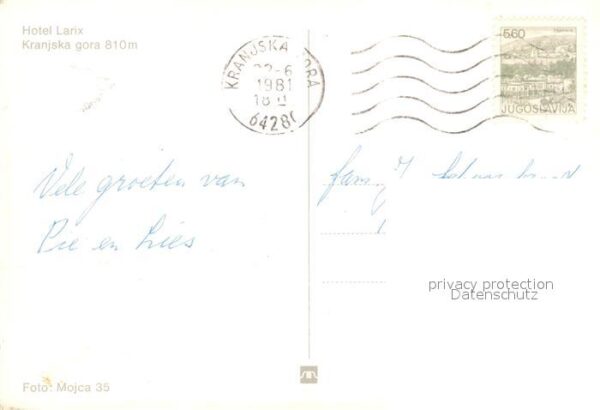 Hotel Larix
Kranjska gora 810m
KRANJSKA GORA
22-6
1981
18
64280
5,60
JUGOSLAVIJA
Vele groeten van
Pie en Lies
fam.
privacy protection
Datenschutz
Foto: Mojca 35